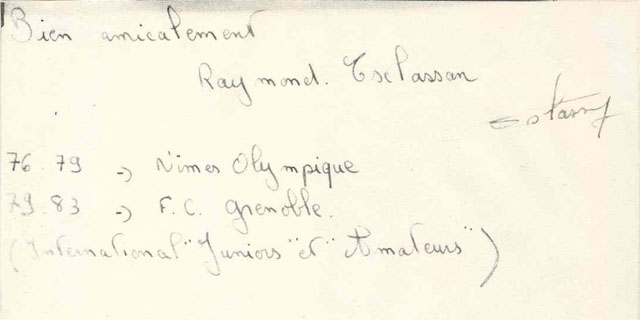 Bien amicalement
Raymond. Esclassan
76.79 -> Nîmes Olympique
79.83 -> F.C. Grenoble.
(International "Juniors" et "Amateurs")